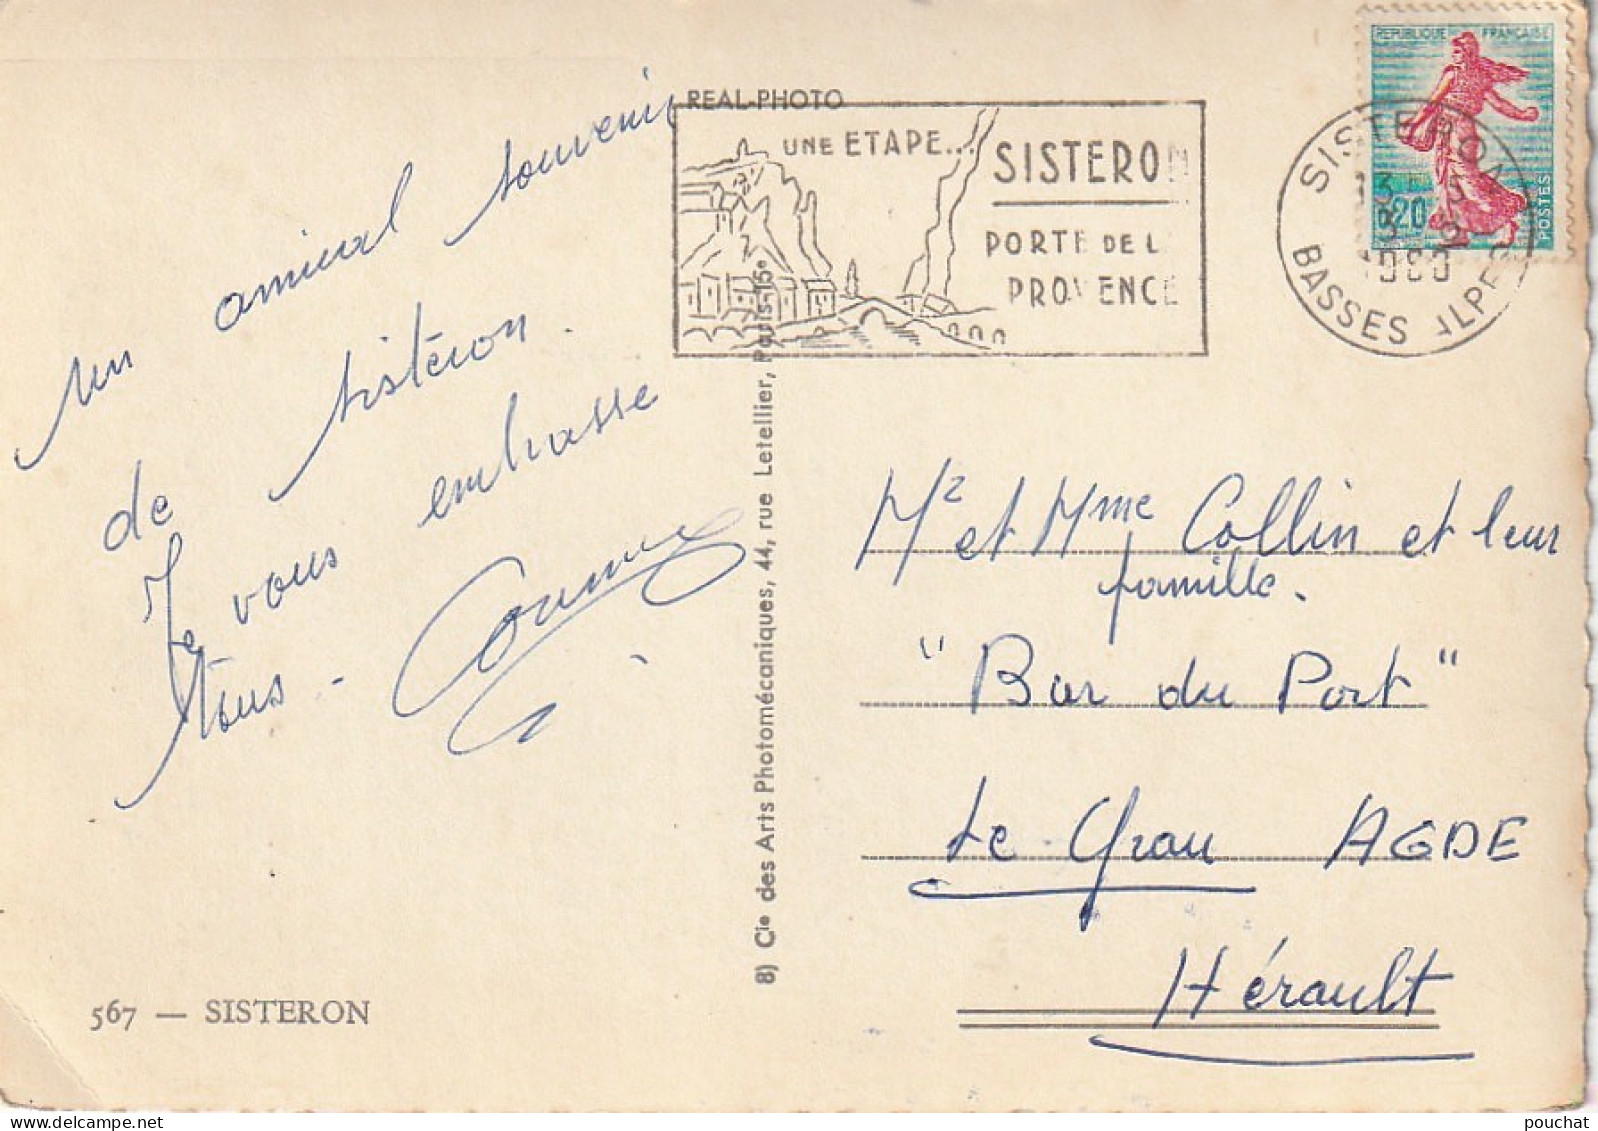 REPUBLIQUE FRANÇAISE
0,20
POSTES
SISTERON
BASSES ALPES
REAL-PHOTO
UNE ETAPE...
SISTERON
PORTE DE L
PROVENCE
un amical souvenir
de sistéron.
Je vous embrasse
tous -
Mr et Mme Collin et leur
famille.
"Bar du Port"
Le Grau AGDE
Hérault
8) Cie des Arts Photomécaniques, 44, rue Letellier, Paris-15e
567 — SISTERON
pouchat